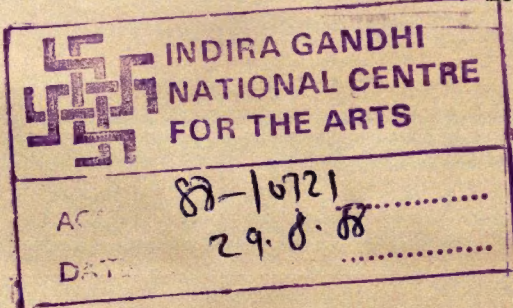 INDIRA GANDHI
NATIONAL CENTRE
FOR THE ARTS
AC 88-10721
DATE 29.8.88